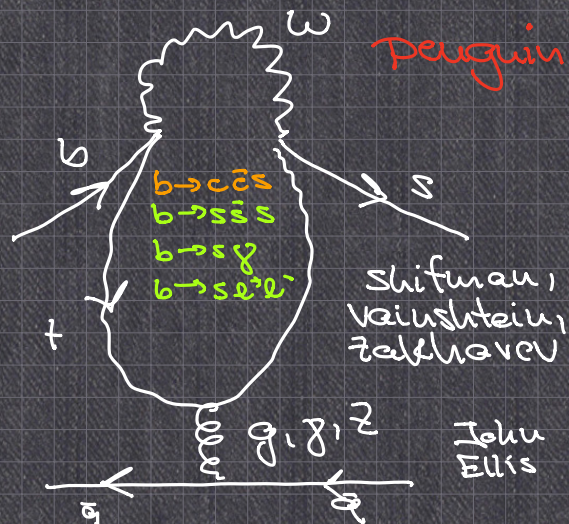 W
Penguin
b
s
b→cc̄s
b→ss̄s
b→sγ
b→sl⁺l⁻
t
Shifman,
Vainshtein,
Zakharov
g, γ, Z
John
Ellis
q̄
q̄